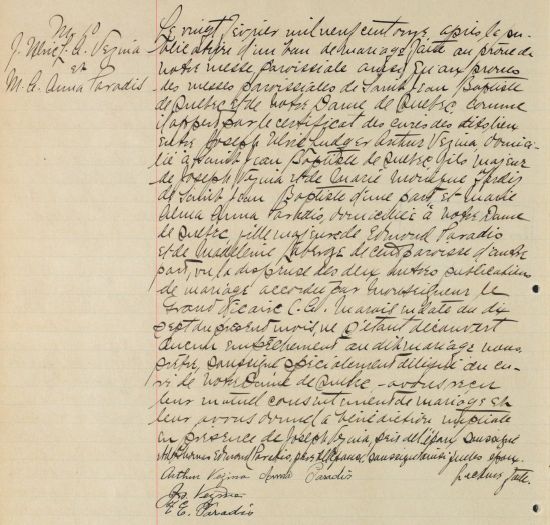 M
J. Ulric L. A. Vezina
et
M. A. Anna Paradis
Le vingt février mil neuf cent onze, après la pu-
blication d'un ban de mariage faite au prône de
notre messe paroissiale ainsi qu'au prônes
des messes paroissiales de Saint Jean Baptiste
de Québec et de Notre Dame de Québec comme
il appert par le certificat des curés des dits lieu
entre Joseph Ulric Ludger Arthur Vezina domici-
lié à Saint Jean Baptiste de Québec fils majeur
de Joseph Vezina et de Marie Monique
de Saint Jean Baptiste d'une part, et Marie
Alma Anna Paradis, domiciliée à Notre Dame
de Québec fille majeure de Edmond Paradis
et de Madeleine Laberge de cette paroisse d'autre
part, vu la dispense des deux autres publication
de mariage accordée par Monseigneur le
Grand Vicaire C. A. Marois en date du dix
sept du présent mois, ne s'étant découvert
aucun empêchement au dit mariage nous
prêtre, soussigné spécialement délégué du cu-
ré de Notre Dame de Québec, avons reçu
leur mutuel consentement de mariage et
leur avons donné la bénédiction nuptiale
en présence de Joseph Vezina, père de l'époux soussigné
Edmond Paradis, père de l'épouse, soussigné ainsi que les époux.
Arthur Vezina Anna Paradis
Jos. Vezina
E. Paradis